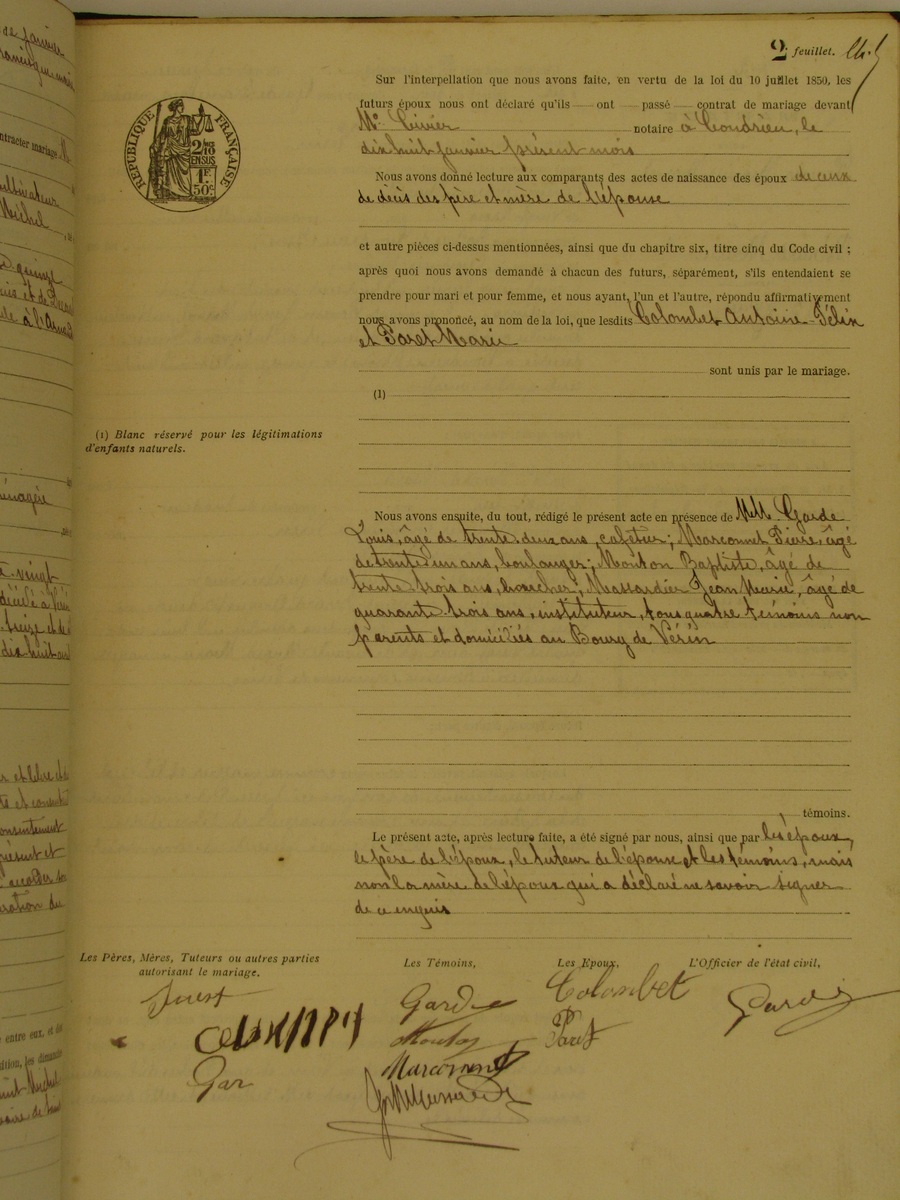 2e feuillet.
RÉPUBLIQUE FRANÇAISE
2/10
EN SUS
1F
50c
Sur l'interpellation que nous avons faite, en vertu de la loi du 10 juillet 1850, les
futurs époux nous ont déclaré qu'ils ont passé contrat de mariage devant
Me notaire à Condrieu, le
dix huit janvier présent mois
Nous avons donné lecture aux comparants des actes de naissance des époux de ceux
de décès des père et mère de l'épouse
et autre pièces ci-dessus mentionnées, ainsi que du chapitre six, titre cinq du Code civil ;
après quoi nous avons demandé à chacun des futurs, séparément, s'ils entendaient se
prendre pour mari et pour femme, et nous ayant, l'un et l'autre, répondu affirmativement
nous avons prononcé, au nom de la loi, que lesdits Colombet Antoine-Félix
et Paret Marie
sont unis par le mariage.
(1)
(1) Blanc réservé pour les légitimations
d'enfants naturels.
Nous avons ensuite, du tout, rédigé le présent acte en présence de MM. Garde
Louis, âgé de trente deux ans, cafetier; Marconnet Pierre, âgé
de trente un ans, boulanger; Mouton Baptiste, âgé de
trente trois ans, boucher; Massardier Jean Marie, âgé de
quarante trois ans, instituteur, tous quatre témoins non
parents et domiciliés au Bourg de Vérin
témoins.
Le présent acte, après lecture faite, a été signé par nous, ainsi que par les époux,
le père de l'époux, le tuteur de l'épouse et les témoins, mais
non la mère de l'époux qui a déclaré ne savoir signer
de ce enquis
Les Pères, Mères, Tuteurs ou autres parties
autorisant le mariage.
Les Témoins,
Les Epoux,
L'Officier de l'état civil,
Garde
Colombet
Mouton
Paret
Marconnet